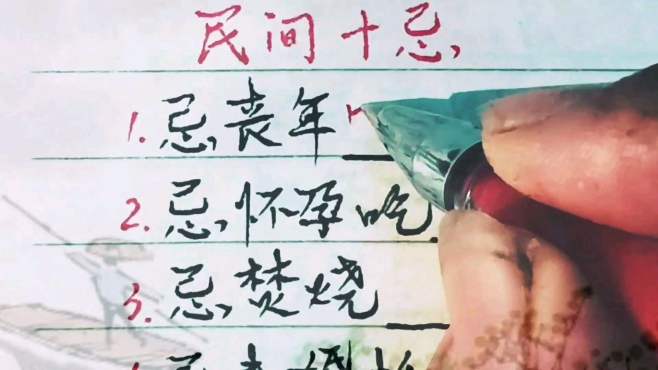 民间十忌
1. 忌丧年
2. 忌怀孕吃
3. 忌焚烧
忌